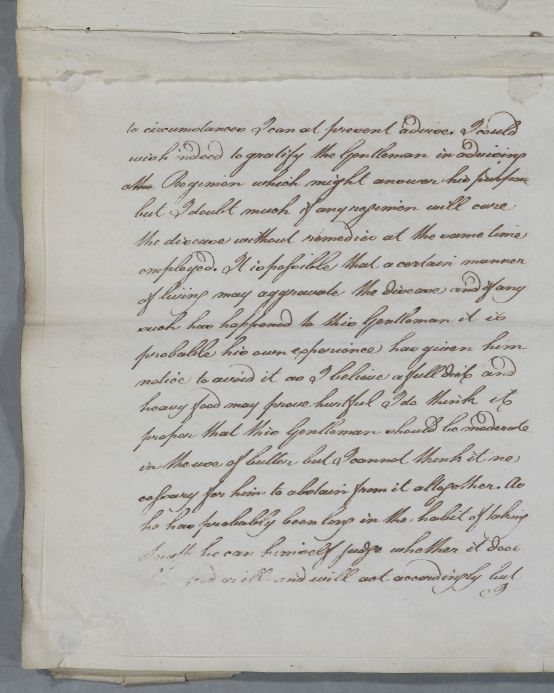 to circumstances I can at present advise. I could
wish indeed to gratify the Gentleman in advising
a Regimen which might answer his purpose
but I doubt much if any regimen will cure
the disease without remedies at the same time
employed. It is possible that a certain manner
of living may aggravate the disease and if any
such has happened to this Gentleman it is
probable his own experience has given him
notice to avoid it as I believe a full diet and
heavy food may prove hurtful I do think it
proper that this Gentleman should be moderate
in the use of butter but I cannot think it ne
cessary for him to abstain from it altogether. As
he has probably been long in the habit of taking
he can himself judge whether it does
good or ill and will act accordingly but